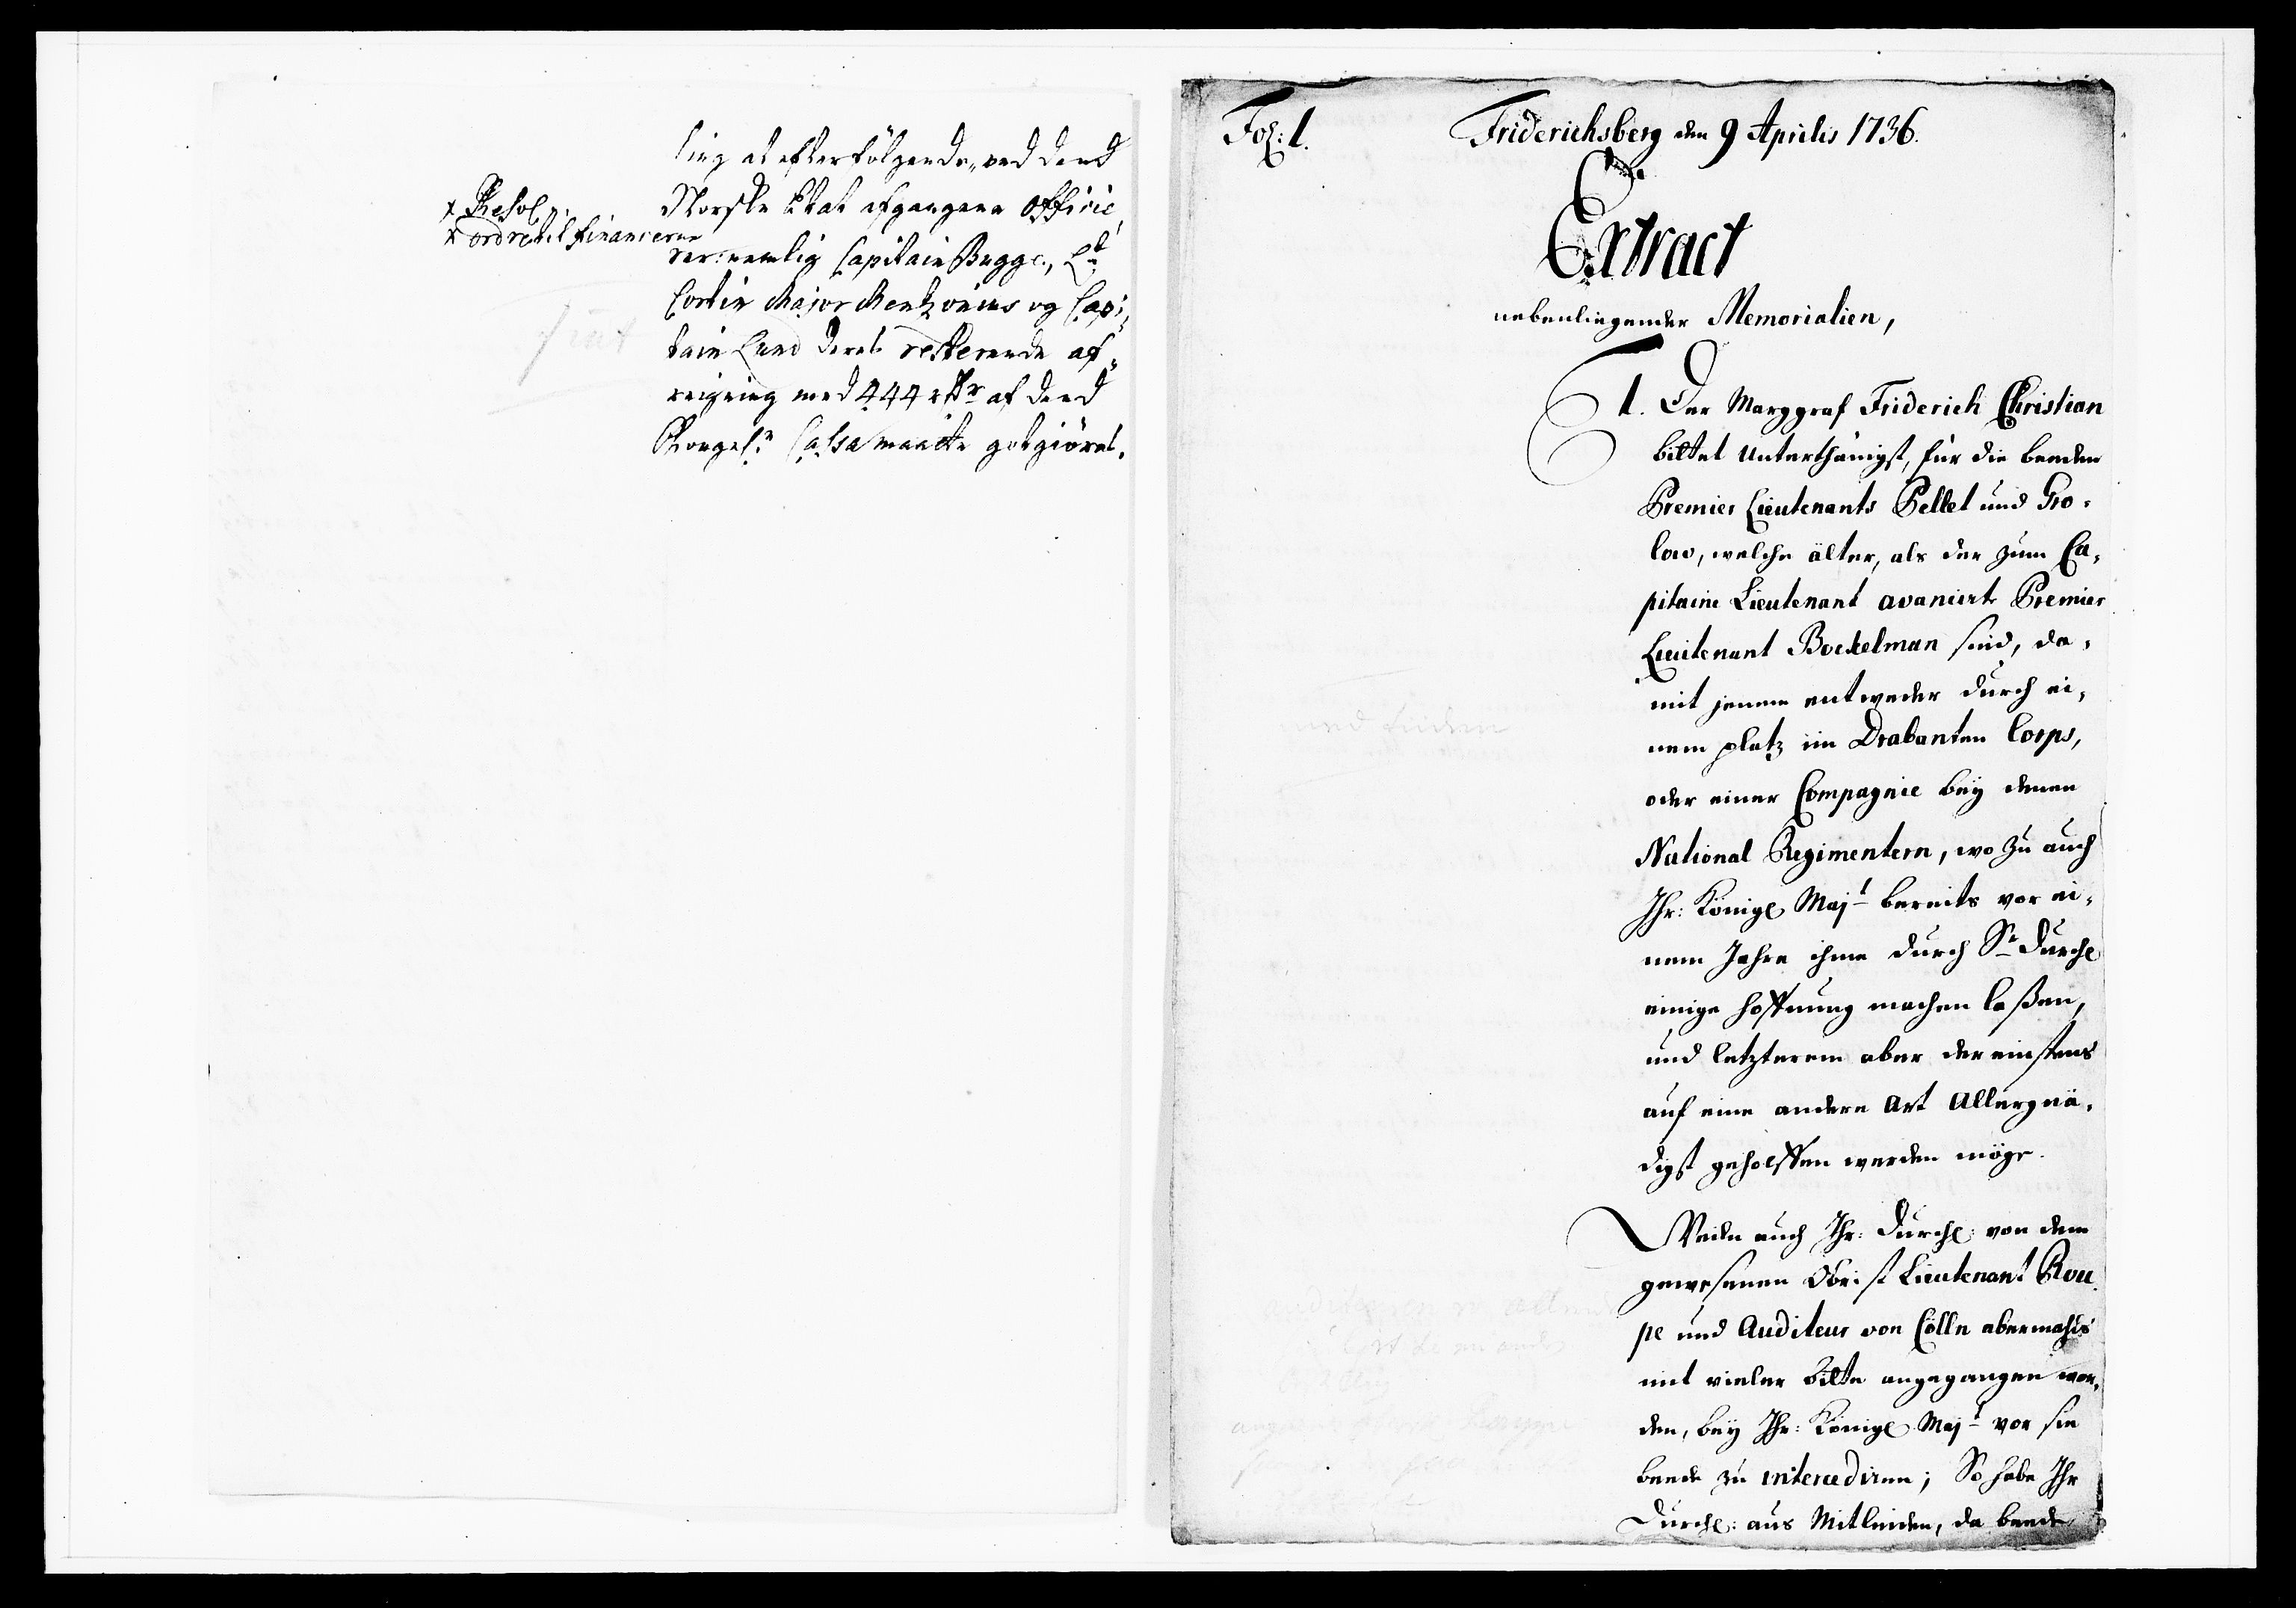 ling at efterfölgende, ved dend
Norske Etat afgangene Officie,
rer: nemlig Capitain Bugge,
Major og Capi,
tain Lund deres resterende af,
regning med 444 rdr af dend
Cassa maatte godtgiöres.
x Resol
x ordre til financerne
Fol: 1.
Friderichsberg den 9 Aprilis 1736.
Extract
nebenliegender Memorialien,
1. Der Marggraf Friderich Christian
bittet unterthänigst, für die beeden
Premier Lieutenants Pellet und Gro,
low, welche älter, als der zum Ca,
pitaine Lieutenant avanirte Premier
Lieutenant Bockelman sind, da,
mit jenem entweder durch ei,
nem platz im Drabanten Corps,
oder einer Compagnie bey denen
National Regimentern, wo zu auch
Ihr: Königl Majt bereits vor ei,
nem Jahre ihme durch Sr Durchl
einige hoffnung machen laßen,
und letzterem aber der einstens
auf eine andere Art Allergnä,
digst geholffen werden möge.
Weile auch Ihr: Durchl: von dem
gewesenen Obrist Lieutenant Rou,
pe und Auditeur von Cölln abermahls
mit vieler bitte angegangen wor,
den, bey Ihr: Königl Majt vor sie
beede zu intercediren; So habe Ihr
Durchl: aus Mitleiden, da beede